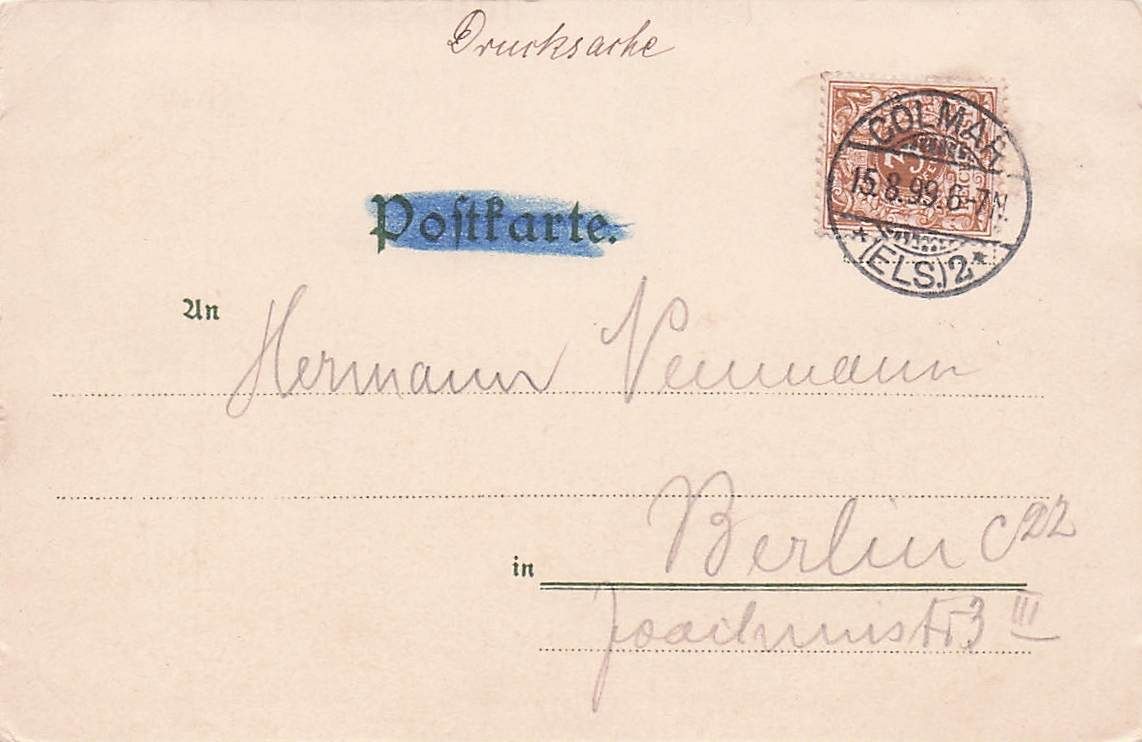 Drucksache
COLMAR
15.8.99.6-7N.
*(ELS.)2*
3
Postkarte.
An
Hermann Neumann
in Berlin C 22
Joachimstr 3 III